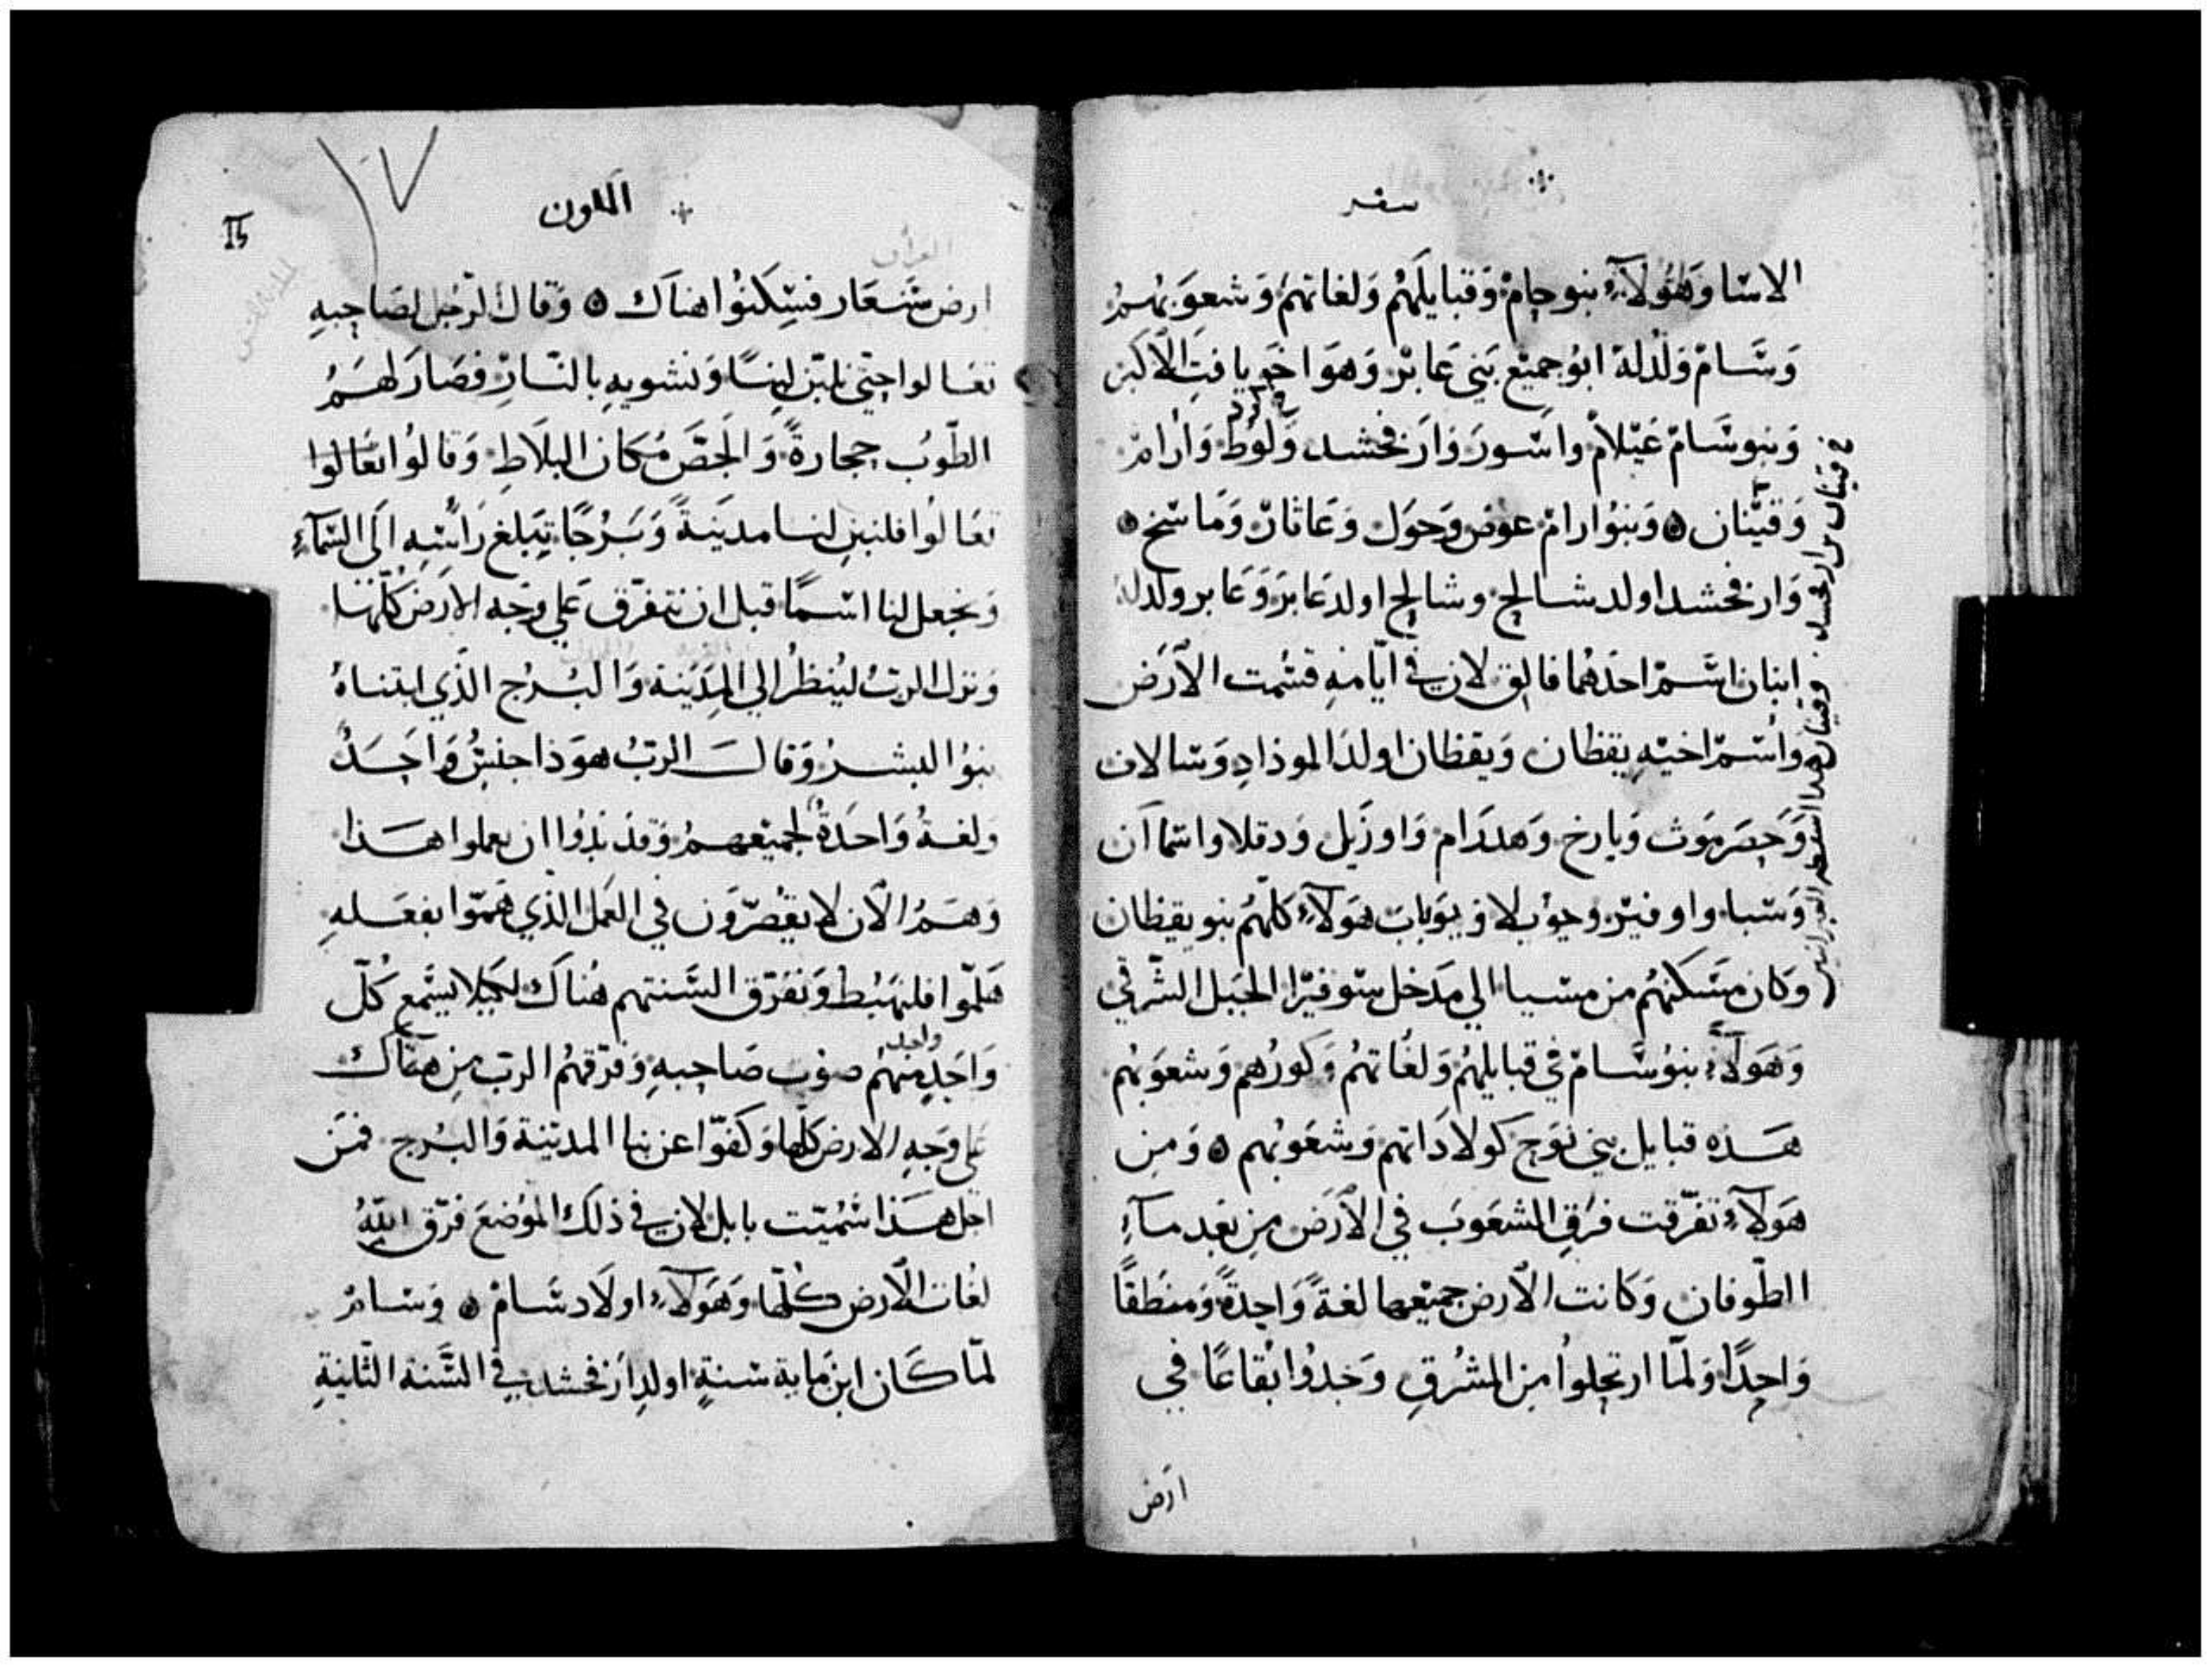 سفر
الاسا وَهَؤُلآءِ بنو حام وَقبايلَهُم وَلغاتهم وَشعوَبهم
وَسَام وَلدُ لهُ ابو جميع بَني عَابر وَهوَ اخو يافت الاكبر
وَبنو سَام عَيلام واسور وَارفخشد وَلوُط وَارام
وَقينان ٥ وَبنوُ ارام عوَض وَحوَل وَعَاثار وَمَاسخ ٥
وَارفخشد اولد شالح وشالح اولد عَابر وَعَابر ولد له
ابنان اسم احدهُما فالق لان في ايّامهِ قسُمت الاَرَض
وَاسم اخيه يقظان وَيقظان اولد الموذادِ وَسالاف
وَحصَرموَت وَيارخ وَهدرَام وَاوزَيل وَدقلا واسماان
وَسَبا واوفير وحوُيلا وَيوَبابَ هَوَلآءِ كلّهُم بنو يقظان
وَكان مَسكنهُم من مسيا الي مَدخل سوفيرا الجبَل الشرقي
وَهَوَلآءِ بنوُ سَام في قبايلهُم وَلغُاتهُم وَكورُهم وَشعوَبهُم
هَذه قبايل بني نوَح كولادَاتهم وَشعَوبُهم ٥ وَمِن
هَوَلآءِ تفَرّقت فرَق الشعَوبَ في الاَرَض مِن بعَد مآءِ
الطّوفان وَكانت الاَرض جميعها لغةً وَاحِدةً وَمنطَقاً
وَاحِدًا وَلَمّا ارتحلوُا مِن المشرُقِ وَجَدوُا بُقاعًا في
ارَض
قينان بن ارفخشد
وقينان هذا اسقطه العبرانيين
١٧
التكون
ارض شَعَار فسَكنَوُا هناَك ٥ وَقال الرّجُل لصَاحِبهِ
تعَالوا حتي نلبّن لبِنًا وَنشويهِ بالنّار فصَارَ لهَمُ
الطّوُب حجارةً وَالجَصّ مُكان البلَاطِ وَقالوُا تعَالوا
تعَالوُا فلنبنِ لنا مدَينَةً وَبَرُجًا يَبلغ رَاسِهِ الَى السّمآءِ
وَنجعل لنا اسمًا قبل ان نتفرّق عَلي وَجَه الارَض كلّهَا
وَنزل الربّ ليُنظرُ الي المدَينة وَالبُرج الذّي ابتناهُ
بنوُ البشر وَقال الربّ هوَذا جنسٌ وَاحَدٌ
وَلغةٌ وَاحدَةٌ لجميَعهم وَقد بَدوُا ان يعملوا هَذا
وَهَمُ الاَن لا يقُصّرَون في العَمل الذّي هَمّوا بفعَلهِ
هَلّموا فلنهَبُط وَنفَرّق السَنتهم هُناكَ لكيلا يسَمع كُلّ
وَاحَدٍ منهُم صوَت صَاحِبهِ وَفرّقهُم الربّ مِن هنَاك
واحد
عَلي وَجَهِ الارض كلّها وَكفوّا عن بنا المدَينة وَالبُرج فمَن
اجل هَذا سُميّت بابل لان في ذلكَ الموُضعَ فرّق اللّهُ
لغُات الاَرض كُلّها وَهَوَلآءِ اولَاد سَام ٥ وَسام
لمّا كَان ابن مَاية سَنةٍ اولد اَرفخشد في السَّنة الثّانيةِ